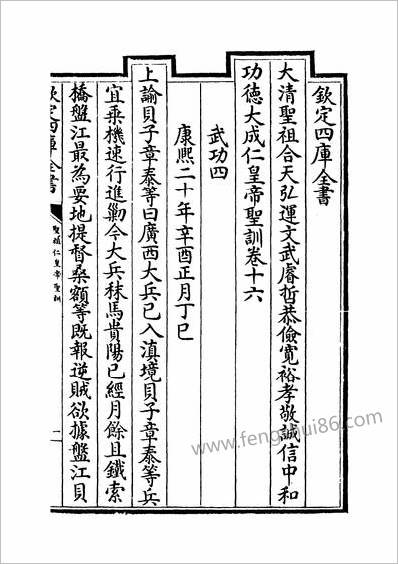 欽定四庫全書
大清聖祖合天弘運文武睿哲恭儉寬裕孝敬誠信中和
功德大成仁皇帝聖訓卷十六
武功四
康熙二十年辛酉正月丁巳
上諭貝子章泰等曰廣西大兵已入滇境貝子章泰等兵
宜乘機速行進勦今大兵秣馬貴陽已經月餘且鐵索
橋盤江最為要地提督桑額等既報逆賊欲據盤江貝
欽定四庫全書
聖祖仁皇帝聖訓
一
www.fengshui86.com